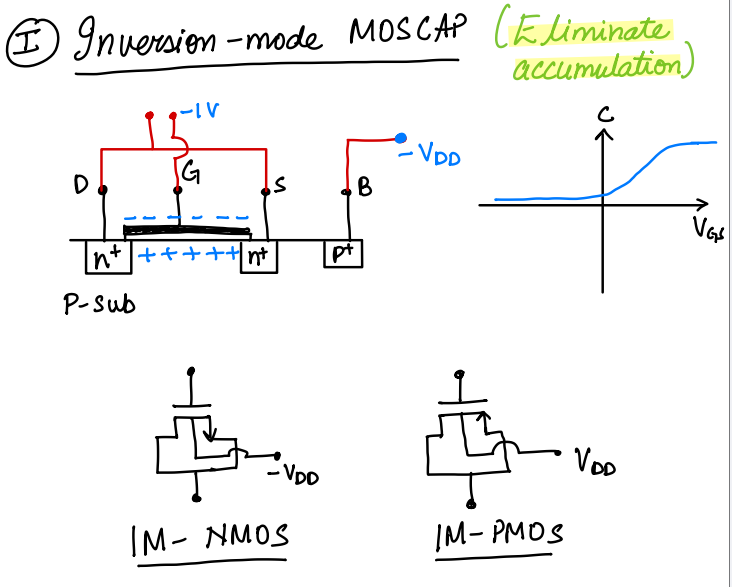 I Inversion-mode MOSCAP (Eliminate accumulation)
-1V
C
-VDD
D G S B
VGS
- - - - - -
n+ + + + + + n+ P+
P-sub
-VDD
VDD
IM-NMOS
IM-PMOS